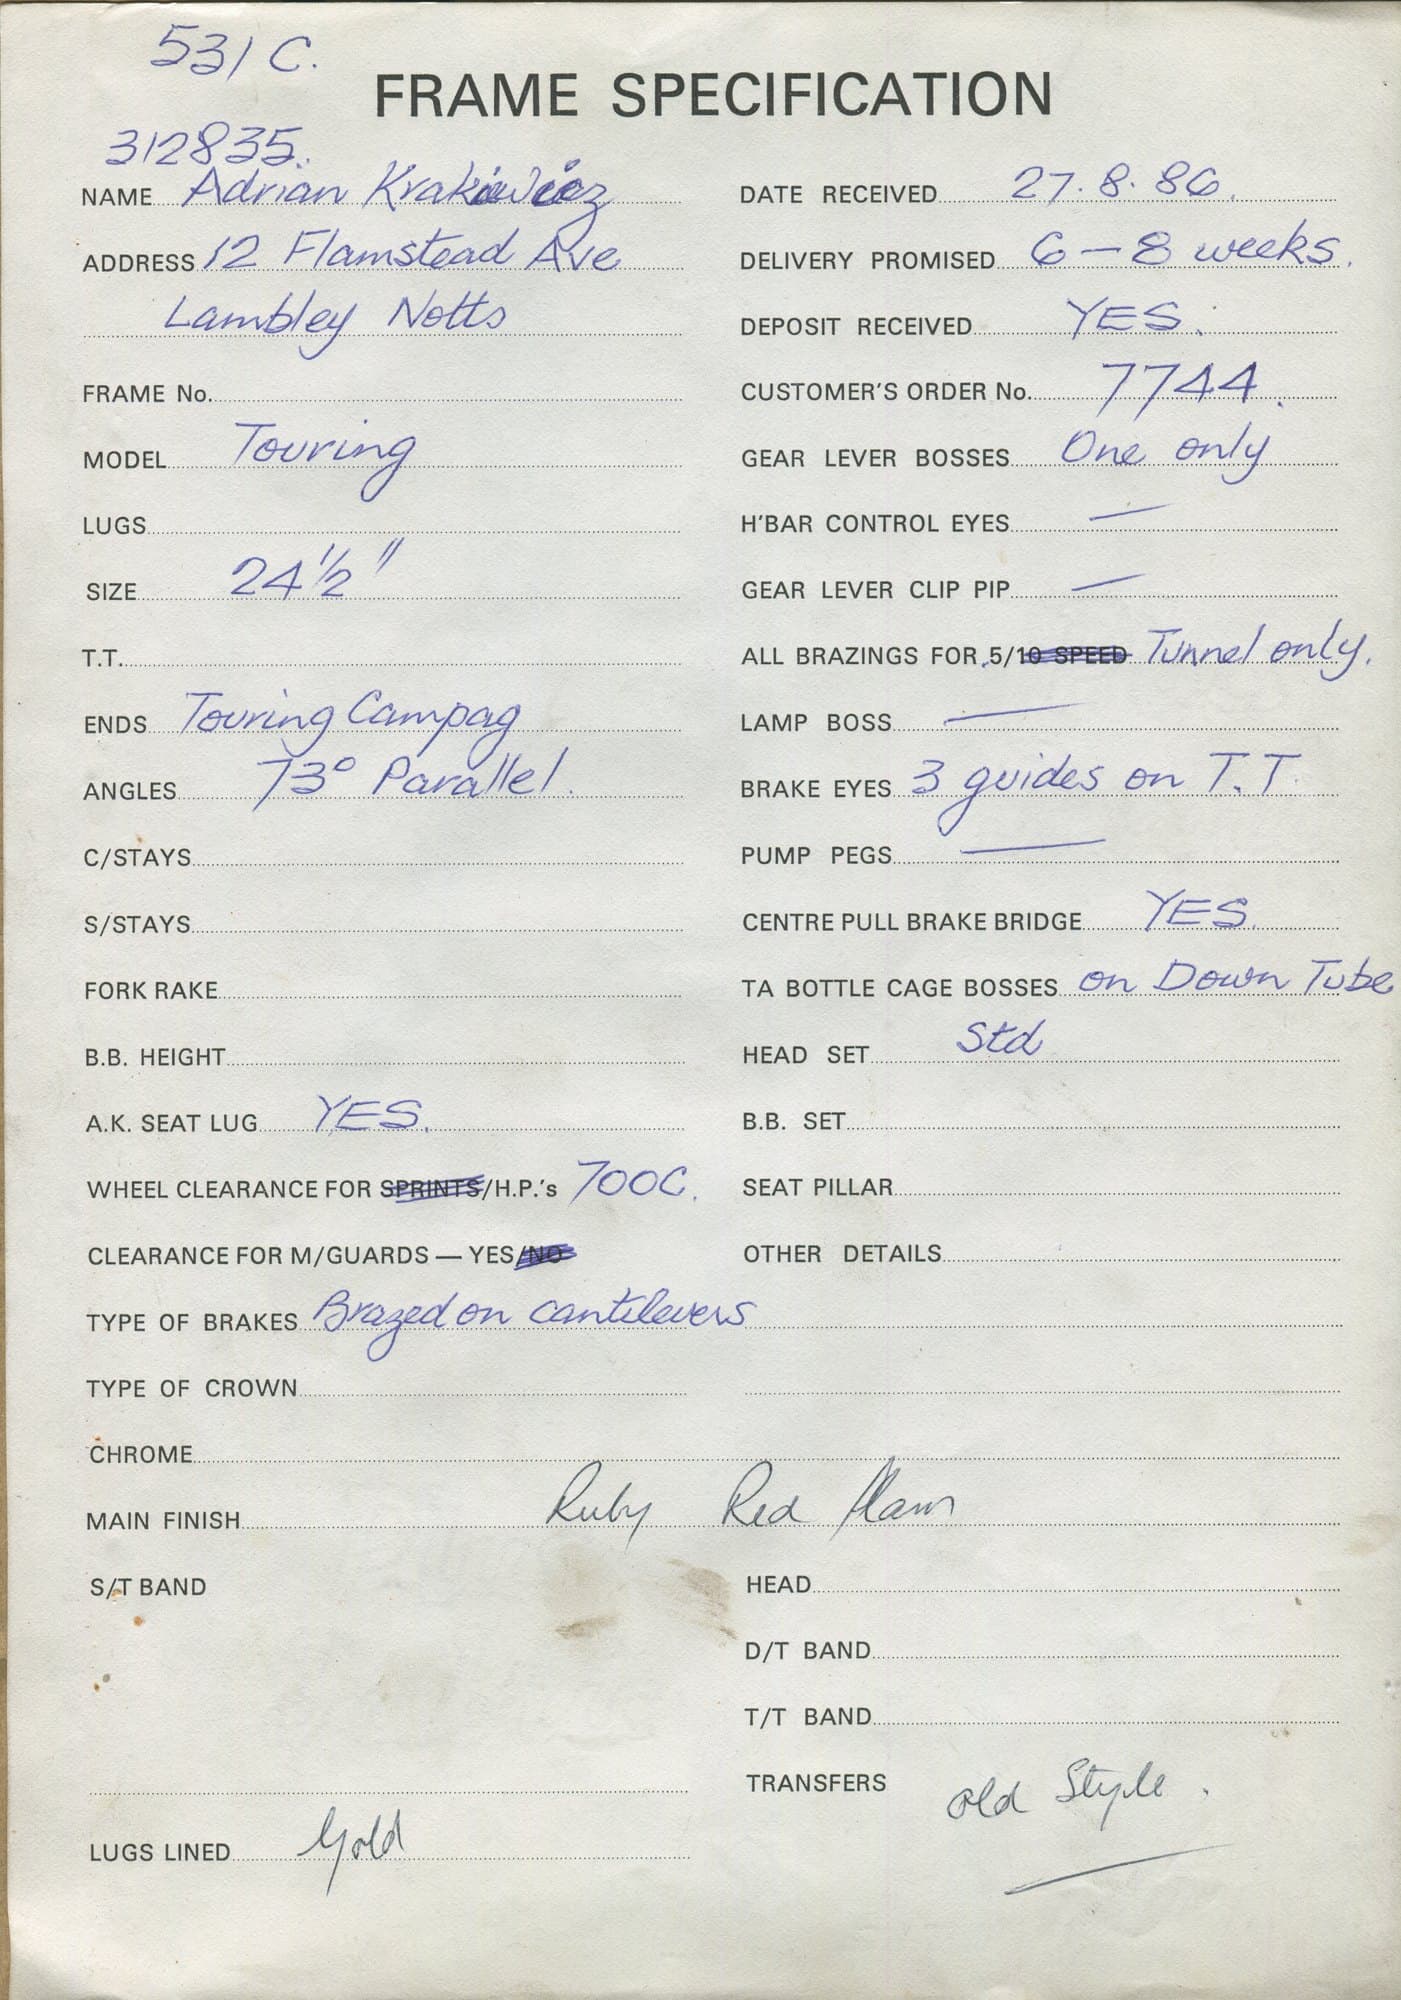 531 C.
FRAME SPECIFICATION
312835.
NAME Adrian Krakiewicz
ADDRESS 12 Flamstead Ave
Lambley Notts
FRAME No.
MODEL Touring
LUGS
SIZE 24 1/2 "
T.T.
ENDS Touring Campag
ANGLES 73° Parallel.
C/STAYS
S/STAYS
FORK RAKE
B.B. HEIGHT
A.K. SEAT LUG YES.
WHEEL CLEARANCE FOR SPRINTS/H.P.'s 700C.
CLEARANCE FOR M/GUARDS — YES/NO
TYPE OF BRAKES Brazed on cantilevers
TYPE OF CROWN
CHROME
MAIN FINISH Ruby Red Flam
S/T BAND
LUGS LINED Gold
DATE RECEIVED 27.8.86.
DELIVERY PROMISED 6 — 8 weeks.
DEPOSIT RECEIVED YES.
CUSTOMER'S ORDER No. 7744.
GEAR LEVER BOSSES One only
H'BAR CONTROL EYES —
GEAR LEVER CLIP PIP —
ALL BRAZINGS FOR 5/10 SPEED Tunnel only.
LAMP BOSS —
BRAKE EYES 3 guides on T.T.
PUMP PEGS —
CENTRE PULL BRAKE BRIDGE YES.
TA BOTTLE CAGE BOSSES on Down Tube
HEAD SET Std
B.B. SET
SEAT PILLAR
OTHER DETAILS
HEAD
D/T BAND
T/T BAND
TRANSFERS old Style.